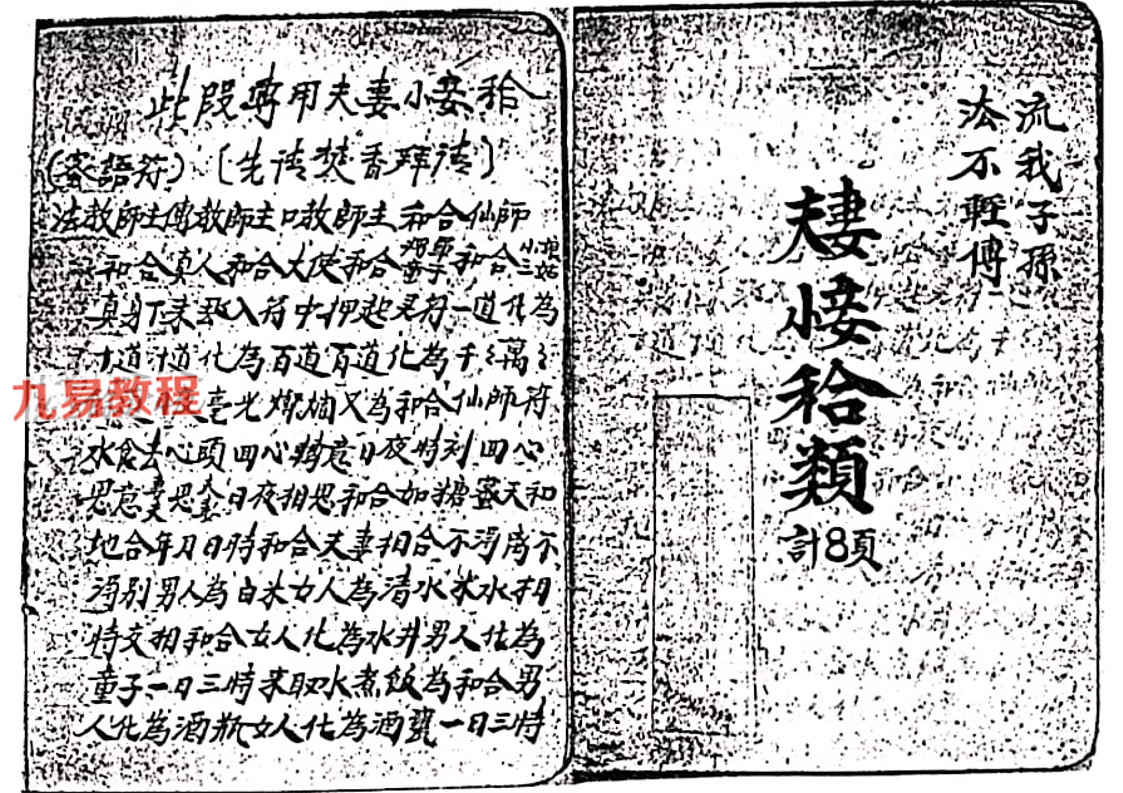 流我子孫
法不輕傳
夫妻小妾秴類
計8頁
此段專用夫妻小妾秴
(密語符)〔先請焚香拜請〕
法教師主傳教師主口教師主和合仙師
和合真人和合大使和合童子和合小三娘姑
真身下來入符中押起灵符一道化為
十道十道化為百道百道化為千〻萬〻
毫光燦爛又為和合仙師符
水食去心頭回心轉意日夜時刻回心
思意思日夜相思和合如糖蜜天和
地合年月日時和合夫妻相合不得离不
得別男人為白米女人為清水米水相
時交相和合女人化為水井男人化為
童子一日三時來取水煮飯為和合男
人化為酒瓶女人化為酒甕一日三時
九易教程